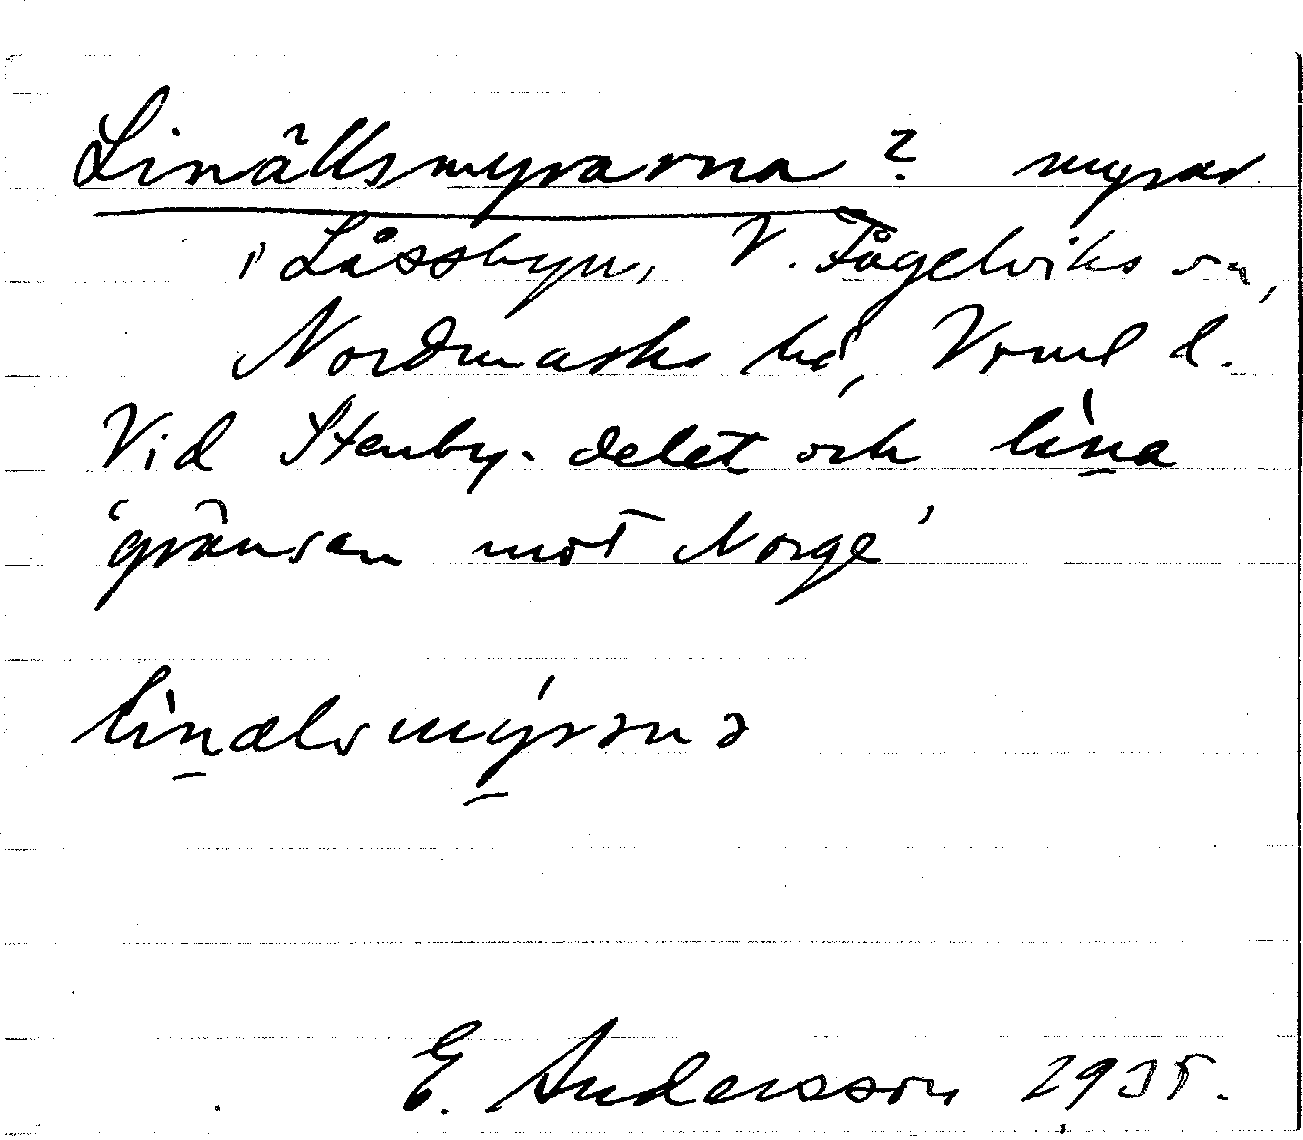 Linällsmyrarna? myrar
i Låssbyn, V. Fågelviks sn,
Nordmarks hd, Vrml d.
Vid Stenby-delet och lìna
'gränsen mot Norge'
lìnælsmýrana
E. Andersson 1935.